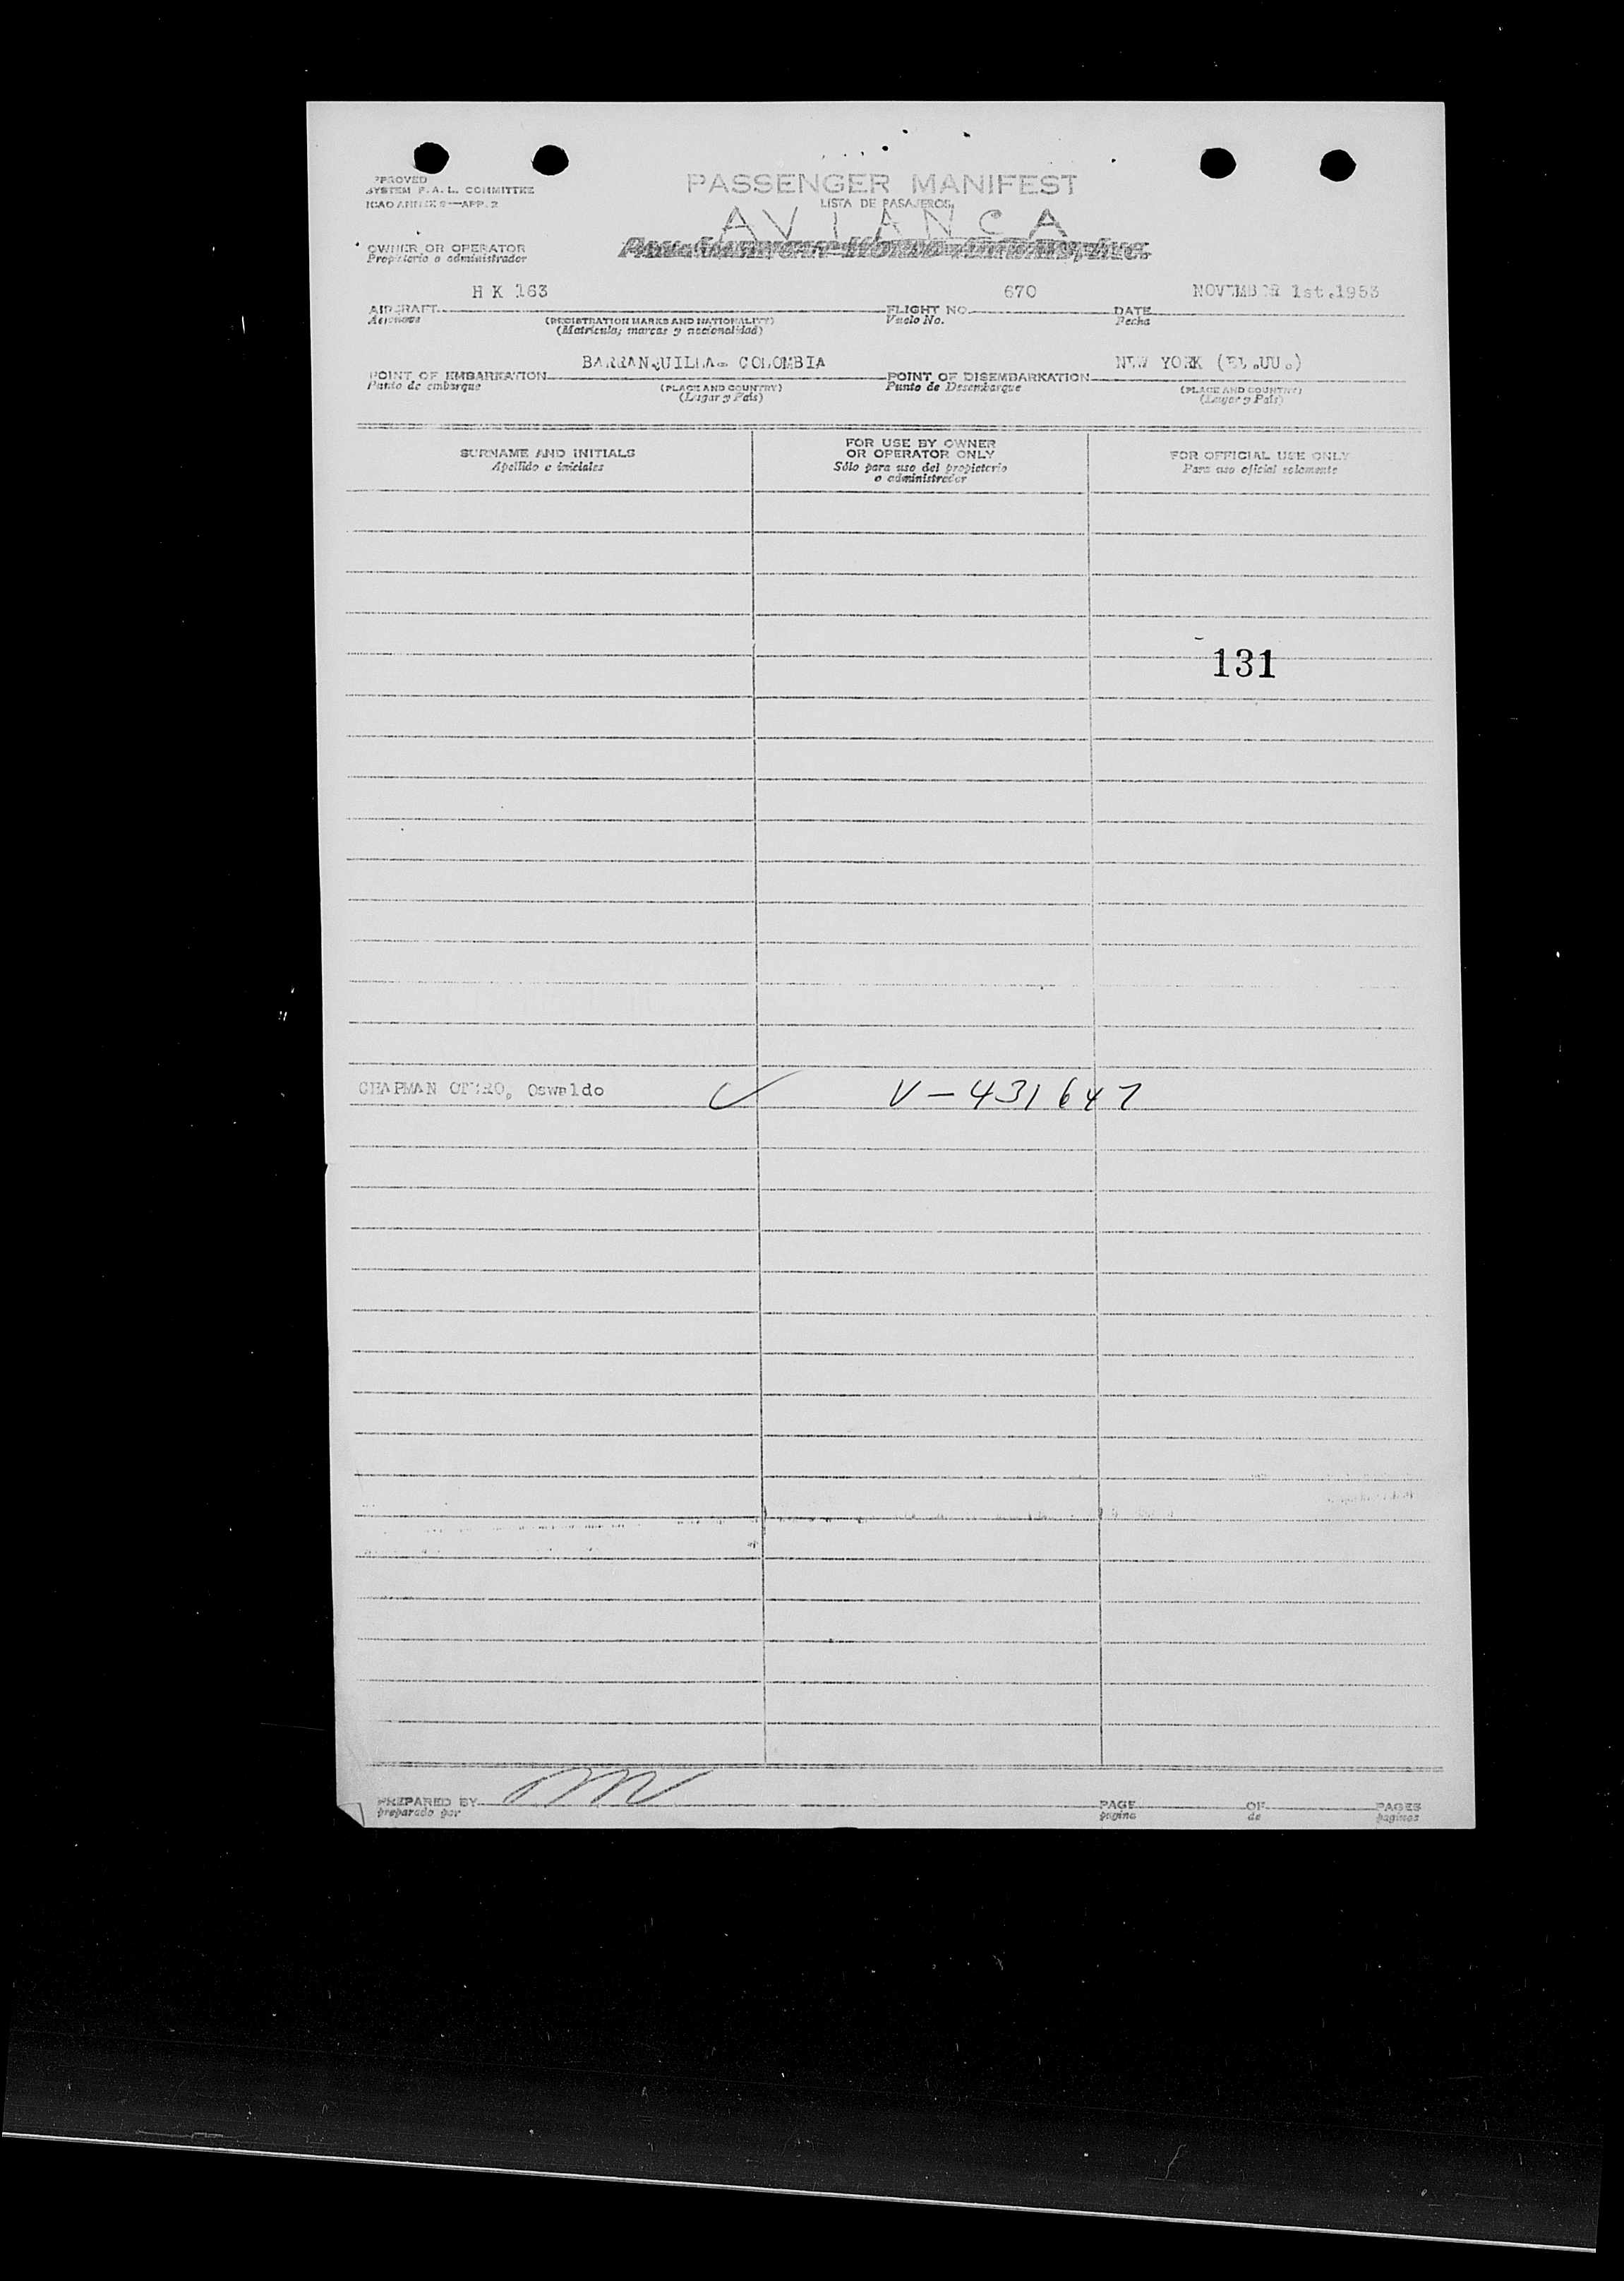 PPROVED
SYSTEM F.A.L. COMMITTEE
ICAO ANNEX 9—APP. 2
PASSENGER MANIFEST
LISTA DE PASAJEROS
AVIANCA
Pan American World Airways, Inc.
OWNER OR OPERATOR
Propietario o administrador
H K 163 670 NOVEMBER 1st.1953
AIRCRAFT FLIGHT NO. DATE
Aeronave (REGISTRATION MARKS AND NATIONALITY) Vuelo No. Fecha
(Matrícula; marcas y nacionalidad)
BARRANQUILLA- COLOMBIA NEW YORK (EE.UU.)
POINT OF EMBARKATION POINT OF DISEMBARKATION
Punto de embarque (PLACE AND COUNTRY) Punto de Desembarque (PLACE AND COUNTRY)
(Lugar y País) (Lugar y País)
SURNAME AND INITIALS
Apellido e iniciales
FOR USE BY OWNER
OR OPERATOR ONLY
Sólo para uso del propietario
o administrador
FOR OFFICIAL USE ONLY
Para uso oficial solamente
131
CHAPMAN OTERO, Oswaldo V-431647
PREPARED BY PAGE OF PAGES
preparado por página de páginas